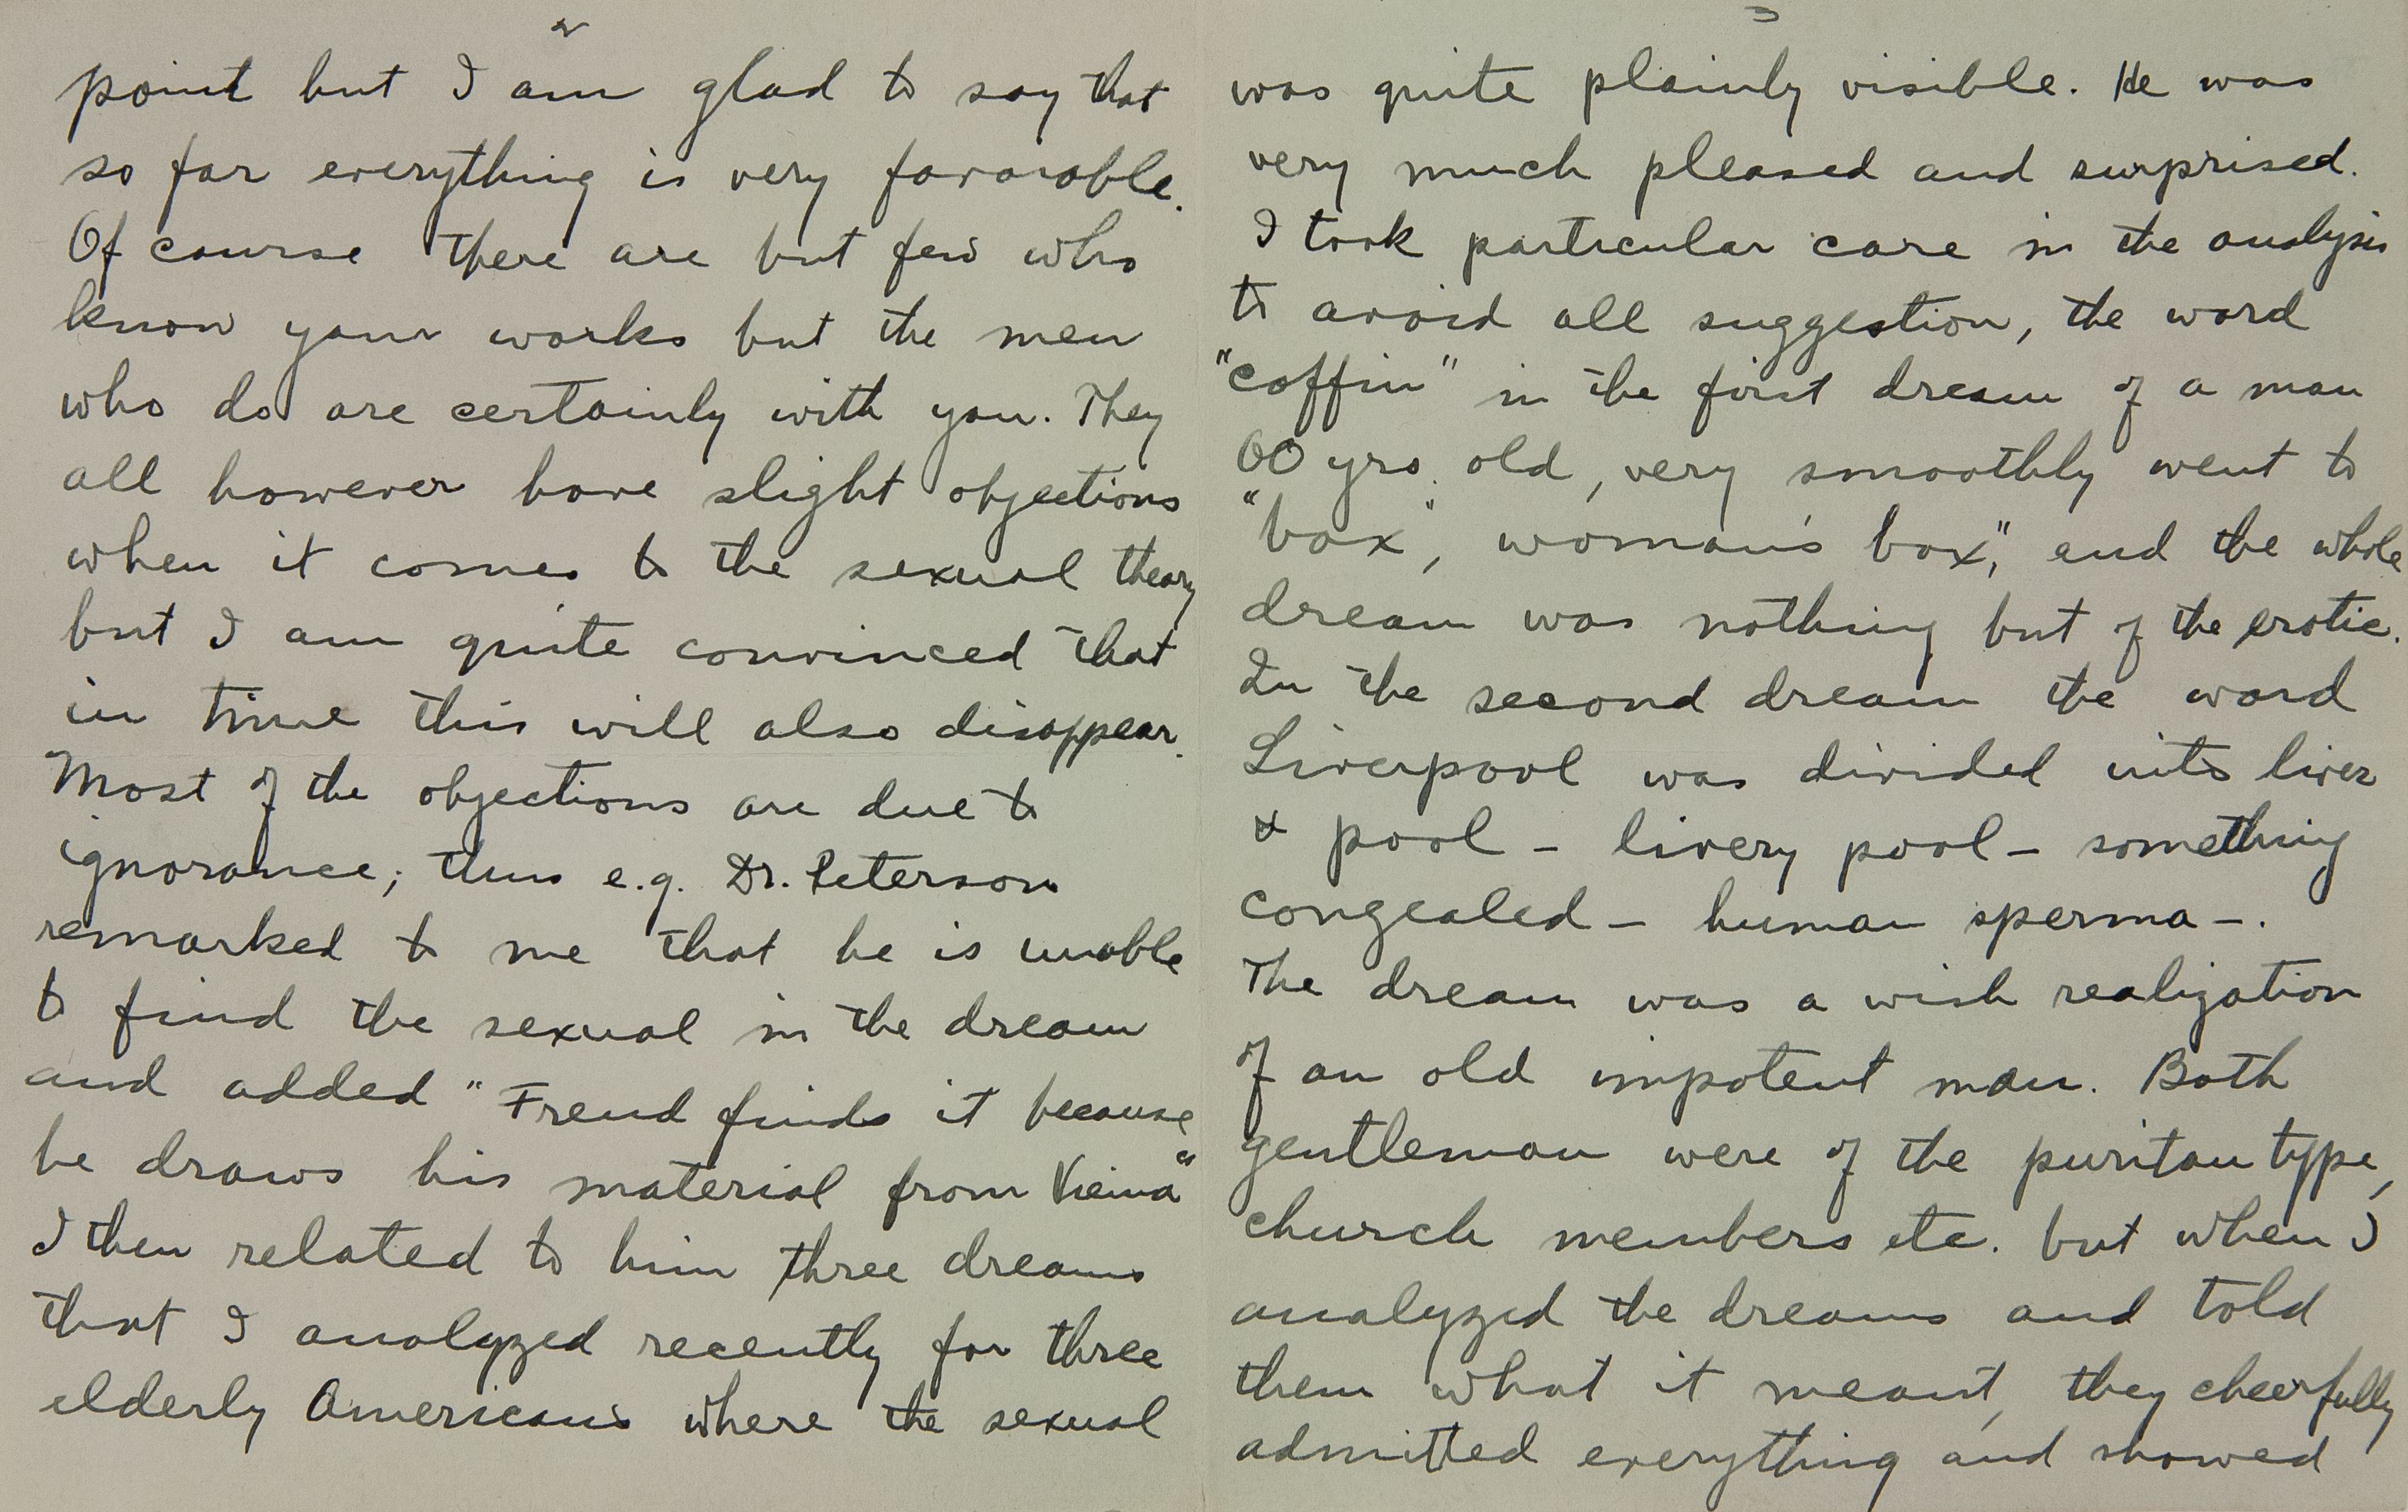 2
point but I am glad to say that
so far everything is very favorable.
Of course there are but few who
know your works but the men
who do are certainly with you. They
all however have slight objections
when it comes to the sexual theory
but I am quite convinced that
in time this will also disappear.
Most of the objections are due to
ignorance; thus e.g. Dr. Peterson
remarked to me that he is unable
to find the sexual in the dream
and added "Freud finds it because
he draws his material from Vienna"
I then related to him three dreams
that I analyzed recently for three
elderly Americans where the sexual
3
was quite plainly visible. He was
very much pleased and surprised.
I took particular care in the analysis
to avoid all suggestion, the word
"coffin" in the first dream of a man
60 yrs. old, very smoothly went to
"box", woman's box", and the whole
dream was nothing but of the erotic.
In the second dream the word
Liverpool was divided into liver
& pool – livery pool – something
congealed – human sperma –.
The dream was a wish realization
of an old impotent man. Both
gentleman were of the puritan type,
church members etc. but when I
analyzed the dreams and told
them what it meant, they cheerfully
admitted everything and showed